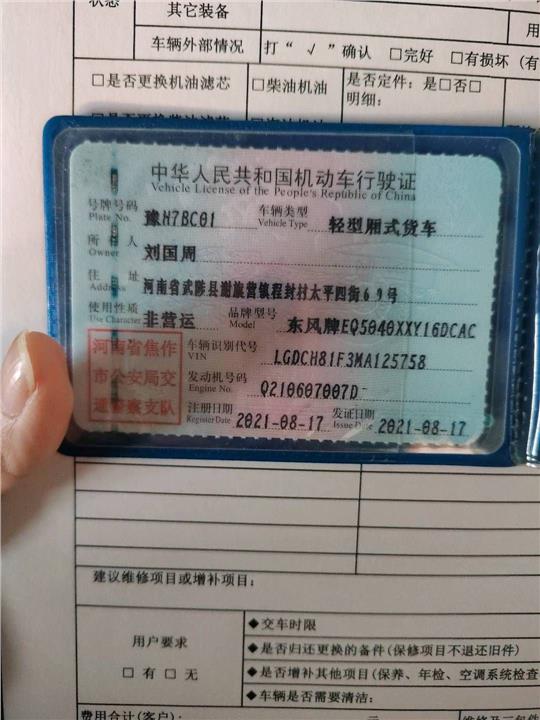 状态
其它装备
用
车辆外部情况
打“ √ ”确认 □完好 □有损坏（有
□是否更换机油滤芯 □柴油机油 是否定件：是□否□
明细：
中华人民共和国机动车行驶证
Vehicle License of the People's Republic of China
号牌号码 豫H7BC01 车辆类型 轻型厢式货车
Plate No. Vehicle Type
所有人 刘国周
Owner
住址 河南省武陟县谢旗营镇程封村太平四街69号
Address
使用性质 非营运 品牌型号 东风牌EQ5040XXY16DCAC
Use Character Model
河南省焦作
市公安局交
通警察支队
车辆识别代号 LGDCH81F3MA125758
VIN
发动机号码 Q210607007D
Engine No.
注册日期 2021-08-17 发证日期 2021-08-17
Register Date Issue Date
建议维修项目或增补项目：
用户要求
□ 有 □ 无
◆交车时限
◆是否归还更换的备件(保修项目不退还旧件)
◆是否增补其他项目(保养、年检、空调系统检查
◆车辆是否需要清洁：
费用合计(客户)：